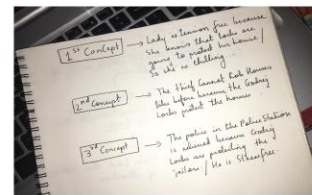 1st Concept → Lady is tension free because
She knows that locks are
going to protect his house /
So she is chilling...
2nd Concept → The thief Cannot Rob Houses
like before because the Godrej
Locks protect the houses
3rd Concept → The police in the Police Station
is relaxed because Godrej
Locks are protecting the
/ He is Stressfree